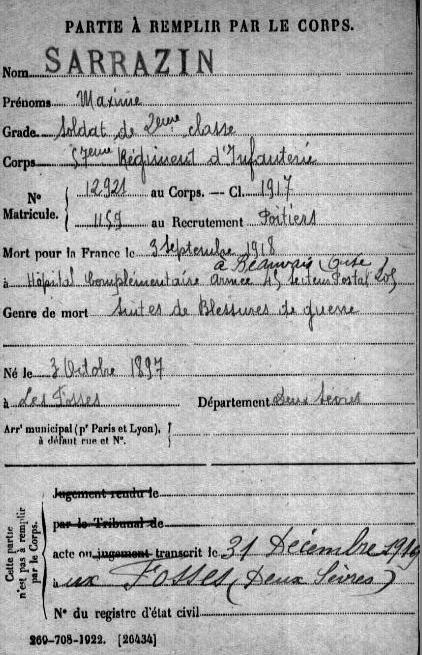 PARTIE À REMPLIR PAR LE CORPS.
Nom SARRAZIN
Prénoms Maxime
Grade Soldat de 2ème classe
Corps 57ème Régiment d'Infanterie
N° Matricule. 12921 au Corps. — Cl. 1917
1159 au Recrutement Poitiers
Mort pour la France le 3 Septembre 1918
à Beauvais Oise
à Hôpital Complémentaire Armée 45 Secteur Postal 205
Genre de mort Suites de Blessures de guerre
Né le 3 Octobre 1897
à Les Fosses Département Deux Sèvres
Arrt municipal (pr Paris et Lyon), à défaut rue et N°.
Cette partie n'est pas à remplir par le Corps.
Jugement rendu le
par le Tribunal de
acte ou jugement transcrit le 31 Décembre 1919
à ux Fosses (Deux Sèvres)
N° du registre d'état civil
269-708-1922. [26434]